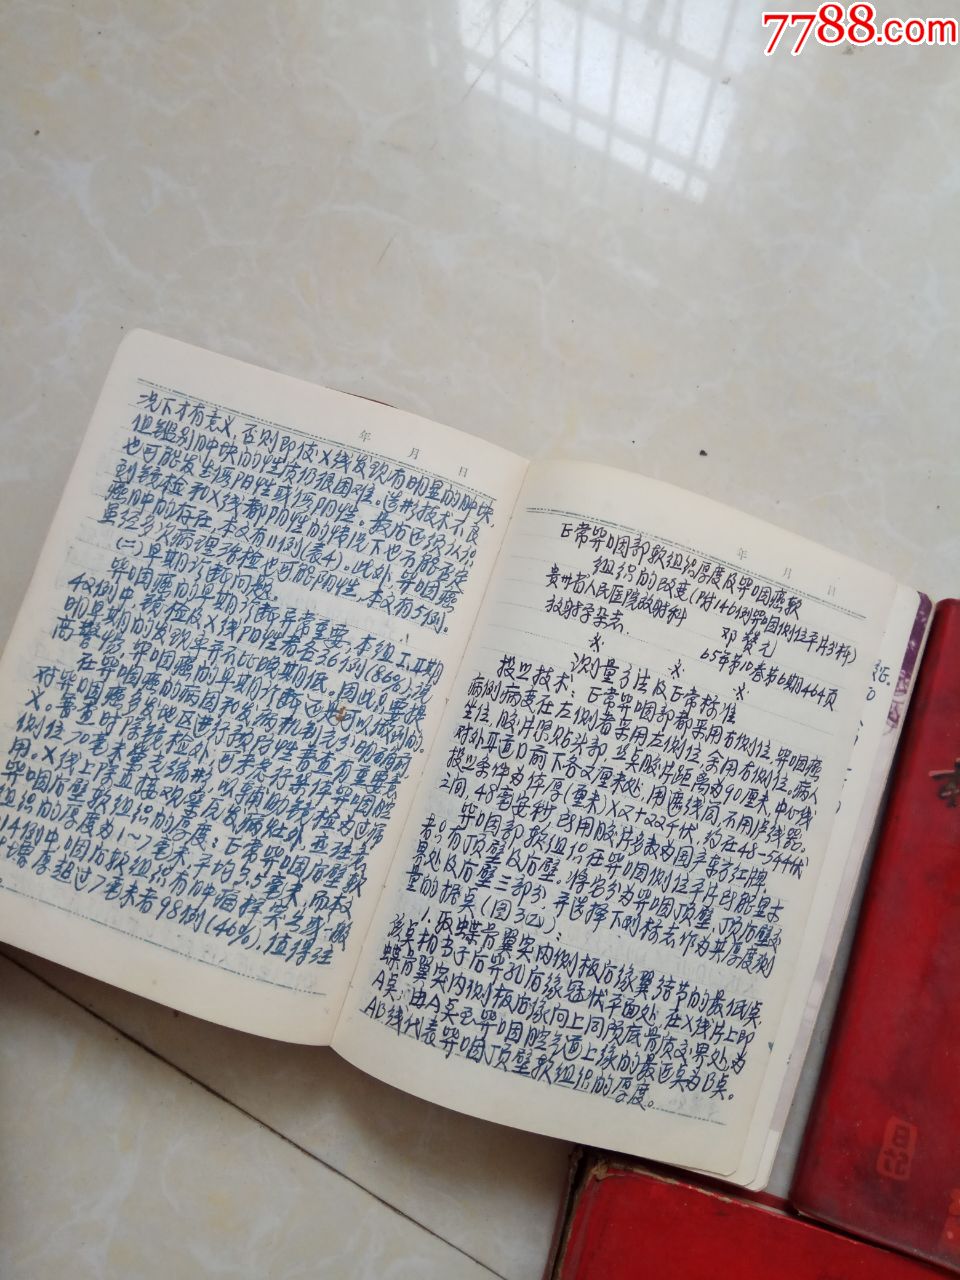 7788.com
年 月 日
况下才有意义，否则即使X线发现有明显的肿块，
但鉴别肿块的性质仍很困难。造形技术不良
也可能发生假阳性或假阴性。最后还须认识
到镜检和X线都阴性的情况下也不能否定
癌肿的存在，本文有11例(表4)。此外，鼻咽癌
虽经多次病理活检也可能阴性，本文有5例。
(二)早期诊断问题
鼻咽癌的早期诊断异常重要，本组I、II期
42例中，镜检及X线阳性者各36例(86%)，说
明早期的发现率并不比晚期低。因此，只要提
高警惕，鼻咽癌的早期诊断还是可以做到的。
在鼻咽癌的病因和发病机制充分明确前，
对鼻咽癌多发地区进行预防性普查有重要意
义。普查时除镜检外，也可先行鼻位鼻咽腔
侧位70毫米荧光缩影，以辅助镜检为过滤
用。X线上除直接观察原发病灶外，再注意
鼻咽后壁软组织的厚度：正常鼻咽后壁软
组织的厚度为1～7毫米，平均3.5毫米，而权
14例中咽后软组织有肿瘤样突出或一般
性增厚超过7毫米者98例(46%)，值得注
年 月 日
正常鼻咽部软组织厚度及鼻咽癌软
组织的改变(附146例鼻咽侧位平片分析)
贵州省人民医院放射科 邓赞元
放射学杂志 65年第10卷第6期464页
※ ※ ※
测量方法及正常标准
投照技术：正常鼻咽部都采用右侧位，鼻咽癌
病例病变在左侧者采用左侧位，余用右侧位。病人
坐位，胶片紧贴头部，焦点胶片距离为90厘米，中心线
对外耳道口前下各2厘米处，用遮线筒，不用滤线器。
投照条件为体厚(厘米)×2+22千伏，约在48-54千伏
之间，48毫安秒，所用胶片多数为国产童子红牌。
鼻咽部软组织在鼻咽侧位平片所能显示
者，有顶壁及后壁。将它分为鼻咽顶壁、顶后壁交
界处及后壁三部分，并选择下列标志作为其厚度测
量的据点(图3乙)：
1. 取蝶骨翼突内侧板后缘翼结节的最低点，
该点相当于后鼻孔后缘冠状平面处，在X线片上即
蝶骨翼突内侧板后缘向上同颅底骨质交界处，为
A点；由A点至鼻咽腔气道上缘的最近点为B点。
AB线代表鼻咽顶壁软组织的厚度。
日记